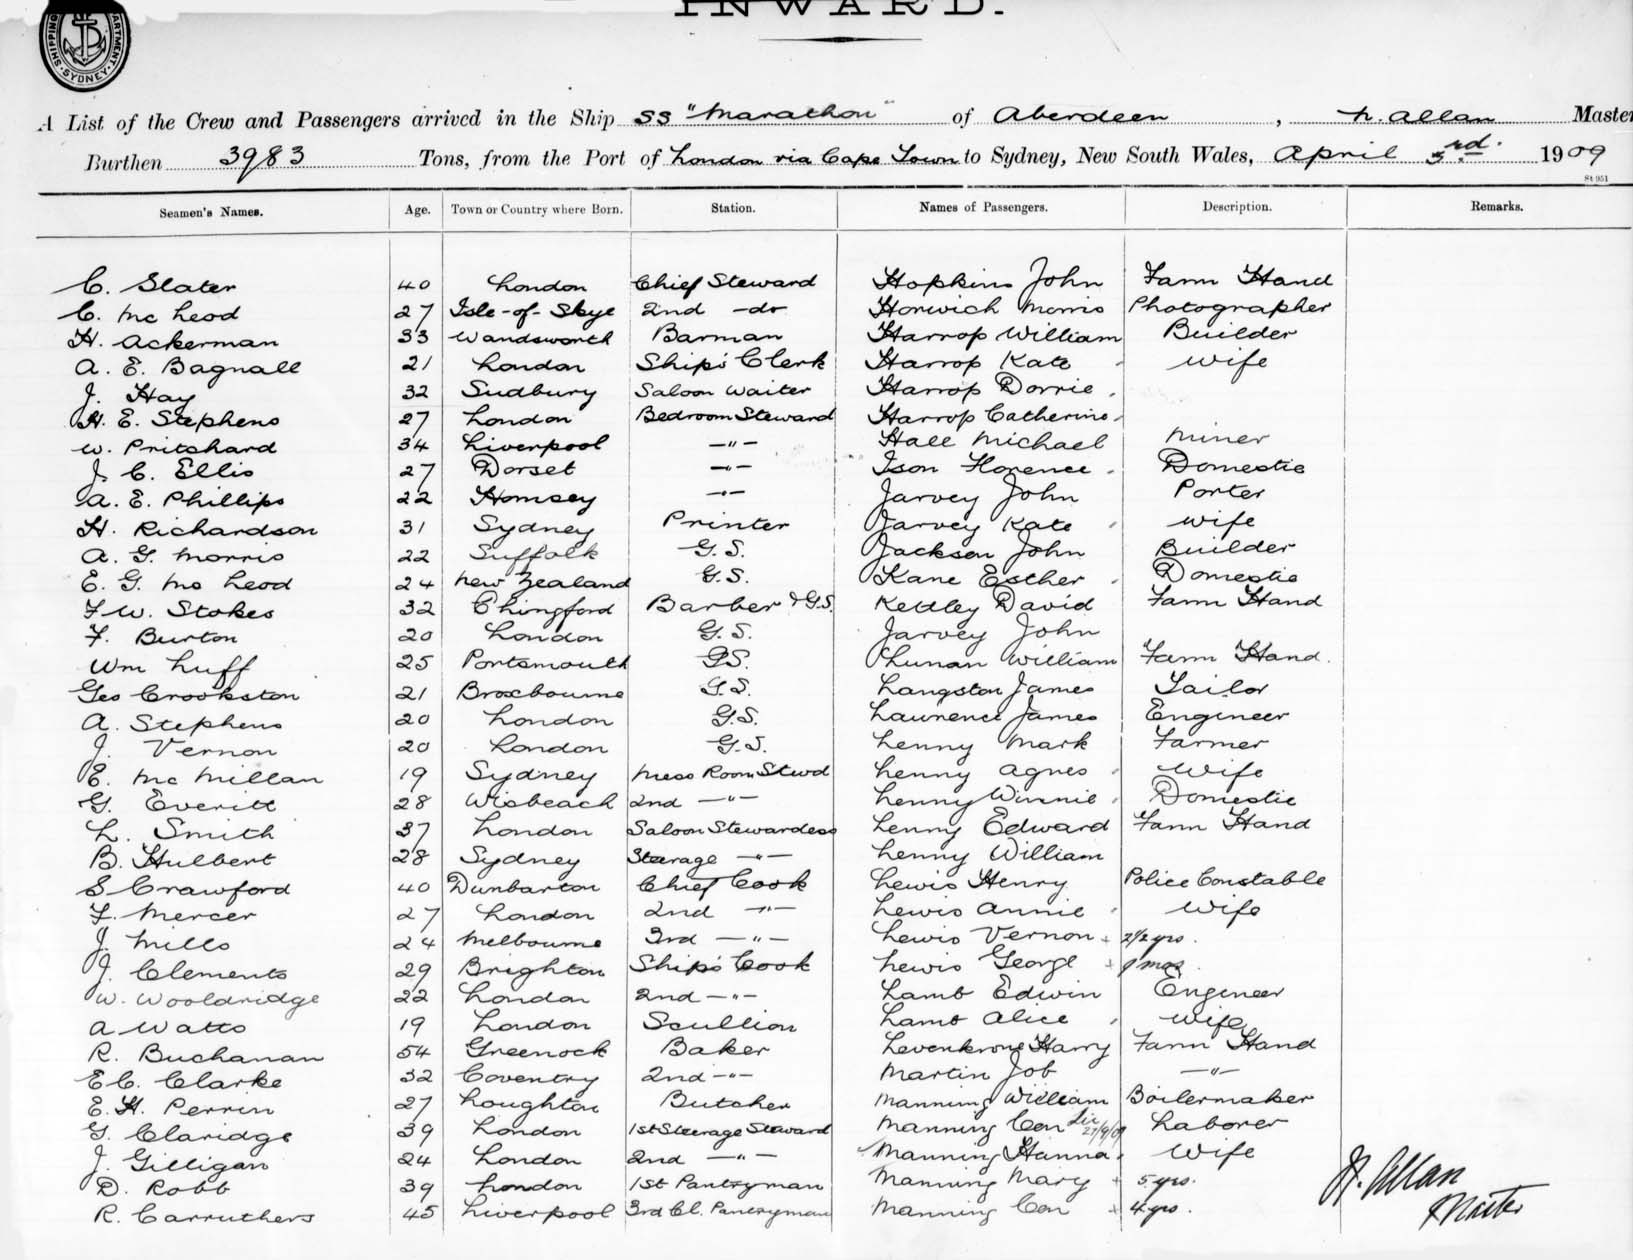 INWARD.
SHIPPING DEPARTMENT SYDNEY
A List of the Crew and Passengers arrived in the Ship SS "Marathon" of Aberdeen, N. Allan Master
Burthen 3983 Tons, from the Port of London via Cape Town to Sydney, New South Wales, April 3rd. 1909
St 951
Seamen's Names. Age. Town or Country where Born. Station. Names of Passengers. Description. Remarks.
C. Slater 40 London Chief Steward Hopkins John Farm Hand
C. Mc Leod 27 Isle-of-Skye 2nd -do Horwich Morris Photographer
H. Ackerman 33 Wandsworth Barman Harrop William Builder
A. E. Bagnall 21 London Ship's Clerk Harrop Kate Wife
J. Hay 32 Sudbury Saloon Waiter Harrop Dorrie
H. E. Stephens 27 London Bedroom Steward Harrop Catherine
W. Pritchard 34 Liverpool —"— Hall Michael Miner
J. C. Ellis 27 Dorset —"— Ison Florence Domestic
A. E. Phillips 22 Hornsey —"— Jarvey John Porter
H. Richardson 31 Sydney Printer Jarvey Kate Wife
A. G. Morris 22 Suffolk G.S. Jackson John Builder
E. G. Mc Leod 24 New Zealand G.S. Kane Esther Domestic
F. W. Stokes 32 Chingford Barber & G.S. Kettley David Farm Hand
F. Burton 20 London G.S. Jarvey John
Wm Luff 25 Portsmouth G.S. Lunan William Farm Hand.
Geo Crookston 21 Broxbourne G.S. Langston James Tailor
A. Stephens 20 London G.S. Lawrence James Engineer
J. Vernon 20 London G.S. Lenny Mark Farmer
E. Mc Millan 19 Sydney Mess Room Stwd Lenny Agnes Wife
G. Everitt 28 Wisbeach 2nd —"— Lenny Winnie Domestic
L. Smith 37 London Saloon Stewardess Lenny Edward Farm Hand
B. Hulbert 28 Sydney Steerage —"— Lenny William
S Crawford 40 Dunbarton Chief Cook Lewis Henry Police Constable
F. Mercer 27 London 2nd —"— Lewis Annie Wife
J. Mills 24 Melbourne 3rd —"— Lewis Vernon 2½ yrs.
J. Clements 29 Brighton Ship's Cook Lewis George 9 mos.
W. Wooldridge 22 London 2nd —"— Lamb Edwin Engineer
A Watts 19 London Scullion Lamb Alice Wife
R. Buchanan 54 Greenock Baker Levenkrone Harry Farm Hand
E C. Clarke 32 Coventry 2nd —"— Martin Job —"—
E. H. Perrin 27 Loughton Butcher Manning William Boilermaker
G. Claridge 39 London 1st Steerage Steward Manning Con Laborer
J. Gilligan 24 London 2nd —"— Manning Hanna Wife
D. Robb 39 London 1st Pantryman Manning Mary 5 yrs.
R. Carruthers 45 Liverpool 3rd Cl. Pantryman Manning Con 4 yrs.
N. Allan
Master